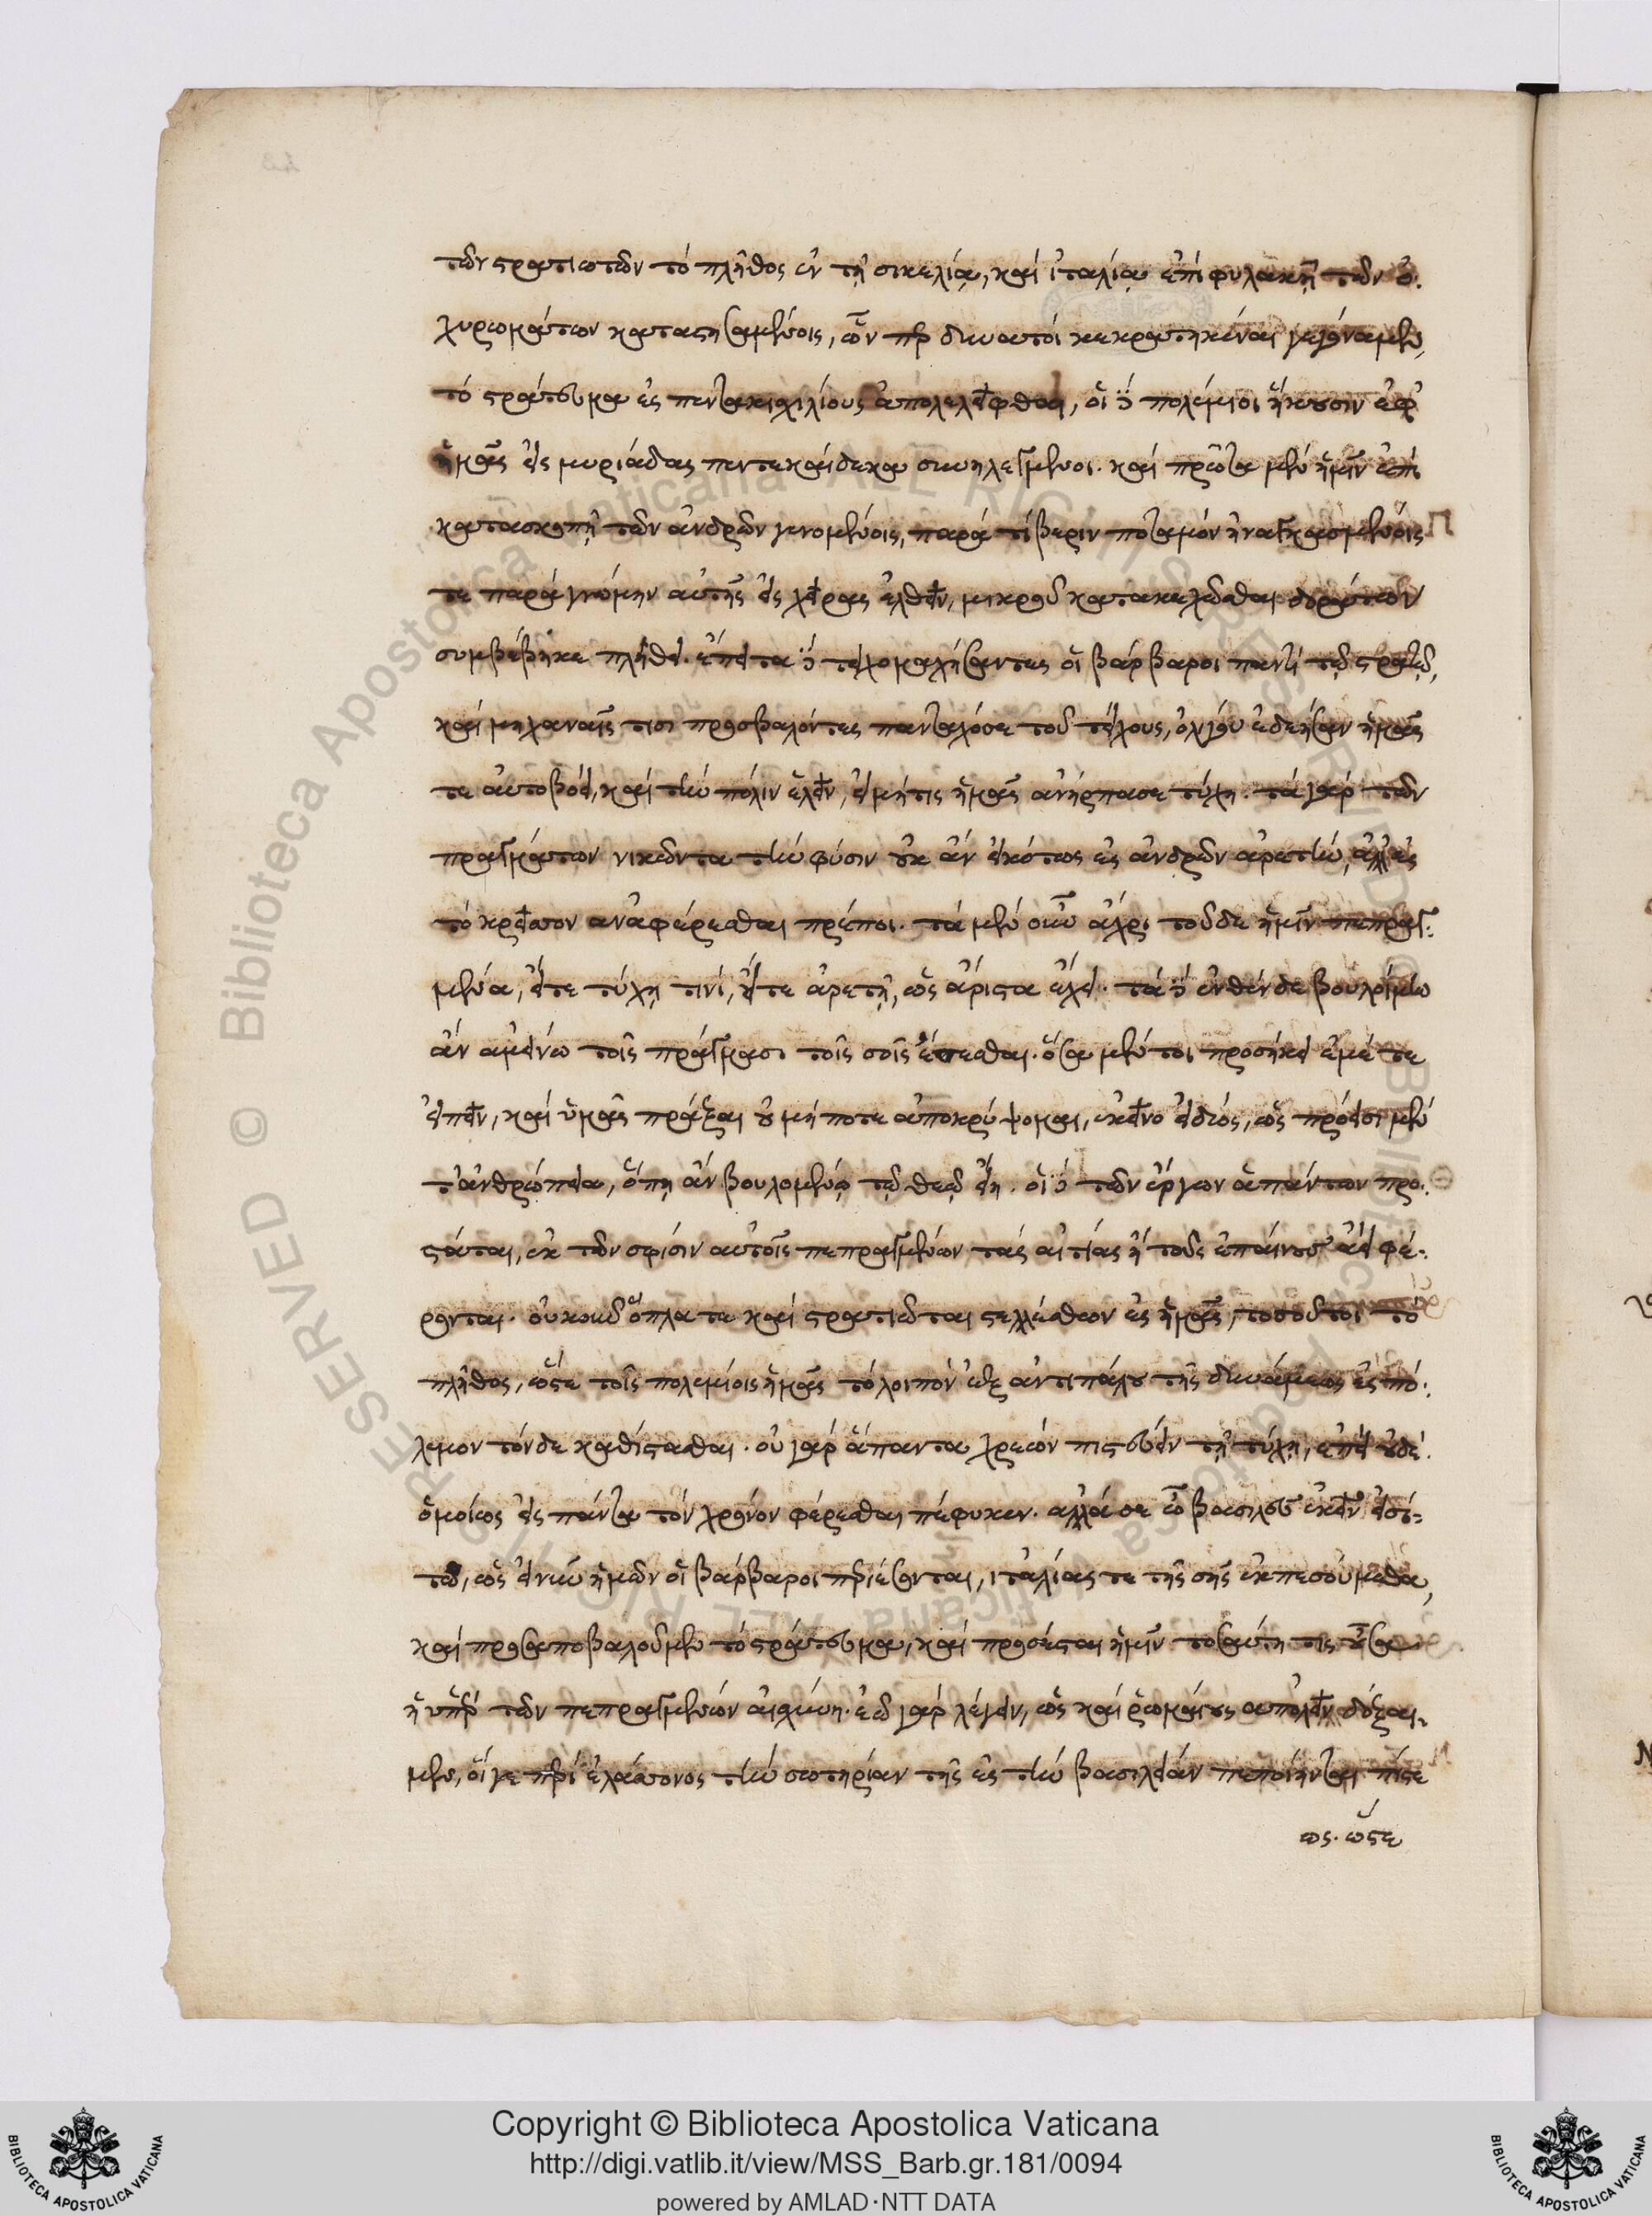 τῶν στρατιωτῶν τὸ πλῆθος ἐν τῇ σικελίᾳ, καὶ ἰταλίᾳ ἐπὶ φυλακῇ τῶν ὀ-
χυρωμάτων καταστησαμένοις, ὧν περ δυνατοὶ κεκρατηκέναι γεγόναμεν,
τὸ στράτευμα ἐς πεντακισχιλίους ἀπολελεῖφθαι, οἱ δὲ πολέμιοι ἥκουσιν ἐφ'
ἡμᾶς εἰς μυριάδας πεντεκαίδεκα συνηλεγμένοι. καὶ πρῶτα μὲν ἡμῖν ἐπὶ
κατασκοπῇ τῶν ἀνδρῶν γενομένοις, παρὰ τίβεριν ποταμὸν ἠναγκασμένοις
τε παρὰ γνώμην αὐτοῖς ἐς χεῖρας ἐλθεῖν, μικροῦ κατακεχῶσθαι δοράτων
συμβέβηκε πλήθει. ἔπειτα δὲ τειχομαχήσαντες οἱ βάρβαροι παντὶ τῷ στρατῷ,
καὶ μηχαναῖς τισι προσβαλόντες πανταχόσε τοῦ τείχους, ὀλίγου ἐδέησαν ἡμᾶς
τε αὐτοβοεὶ, καὶ τὴν πόλιν ἑλεῖν, εἰ μή τις ἡμᾶς ἀνήρπασε τύχη. τὰ γὰρ τῶν
πραγμάτων νικῶντα τὴν φύσιν οὐκ ἂν εἰκότως ἐς ἀνδρῶν ἀρετὴν, ἀλλ' ἐς
τὸ κρεῖσσον ἀναφέρεσθαι πρέποι. τὰ μὲν οὖν ἄχρι τοῦδε ἡμῖν πεπραγ-
μένα, εἴτε τύχῃ τινὶ, εἴτε ἀρετῇ, ὡς ἄριστα ἔχει. τὰ δὲ ἐνθένδε βουλοίμην
ἂν ἀμείνω τοῖς πράγμασι τοῖς σοῖς ἔσεσθαι. ὅσα μέντοι προσήκει ἐμέ τε
εἰπεῖν, καὶ ὑμᾶς πρᾶξαι οὐ μήποτε ἀποκρύψομαι, ἐκεῖνο εἰδὼς, ὡς πρόεισι μὲν
τἀνθρώπεια, ὅπῃ ἂν βουλομένῳ τῷ θεῷ εἴη. οἱ δὲ τῶν ἔργων ἁπάντων προ-
στάται, ἐκ τῶν σφίσιν αὐτοῖς πεπραγμένων τὰς αἰτίας ἢ τοὺς ἐπαίνους ἀεὶ φέ-
ρονται. οὐκοῦν ὅπλα τε καὶ στρατιῶται στελλέσθων ἐς ἡμᾶς, τοσοῦτοι τὸ
πλῆθος, ὥστε τοῖς πολεμίοις ἡμᾶς τὸ λοιπὸν ἐξ ἀντιπάλου τῆς δυνάμεως ἐς πό-
λεμον τόνδε καθίστασθαι. οὐ γὰρ ἅπαντα χρεὼν πιστεύειν τῇ τύχῃ, ἐπεὶ οὐδὲ
ὁμοίως εἰς πάντα τὸν χρόνον φέρεσθαι πέφυκεν. ἀλλά σε ὦ βασιλεῦ ἐκεῖν' εἰσί-
τω, ὡς εἰ νῦν ἡμῶν οἱ βάρβαροι περιέσονται, ἰταλίας τε τῆς σῆς ἐκπεσούμεθα,
καὶ προσαποβαλοῦμεν τὸ στράτευμα, καὶ προσέσται ἡμῖν τοσαύτη τις οὖσα
ἡ ὑπὲρ τῶν πεπραγμένων αἰσχύνη. ἐῶ γὰρ λέγειν, ὡς καὶ ῥωμαίους ἀπολεῖν δόξαι-
μεν, οἵ γε περὶ ἐλάσσονος τὴν σωτηρίαν τῆς ἐς τὴν βασιλείαν πεποίηνται πίστε
ως. ὥστε
Copyright © Biblioteca Apostolica Vaticana
http://digi.vatlib.it/view/MSS_Barb.gr.181/0094
powered by AMLAD·NTT DATA